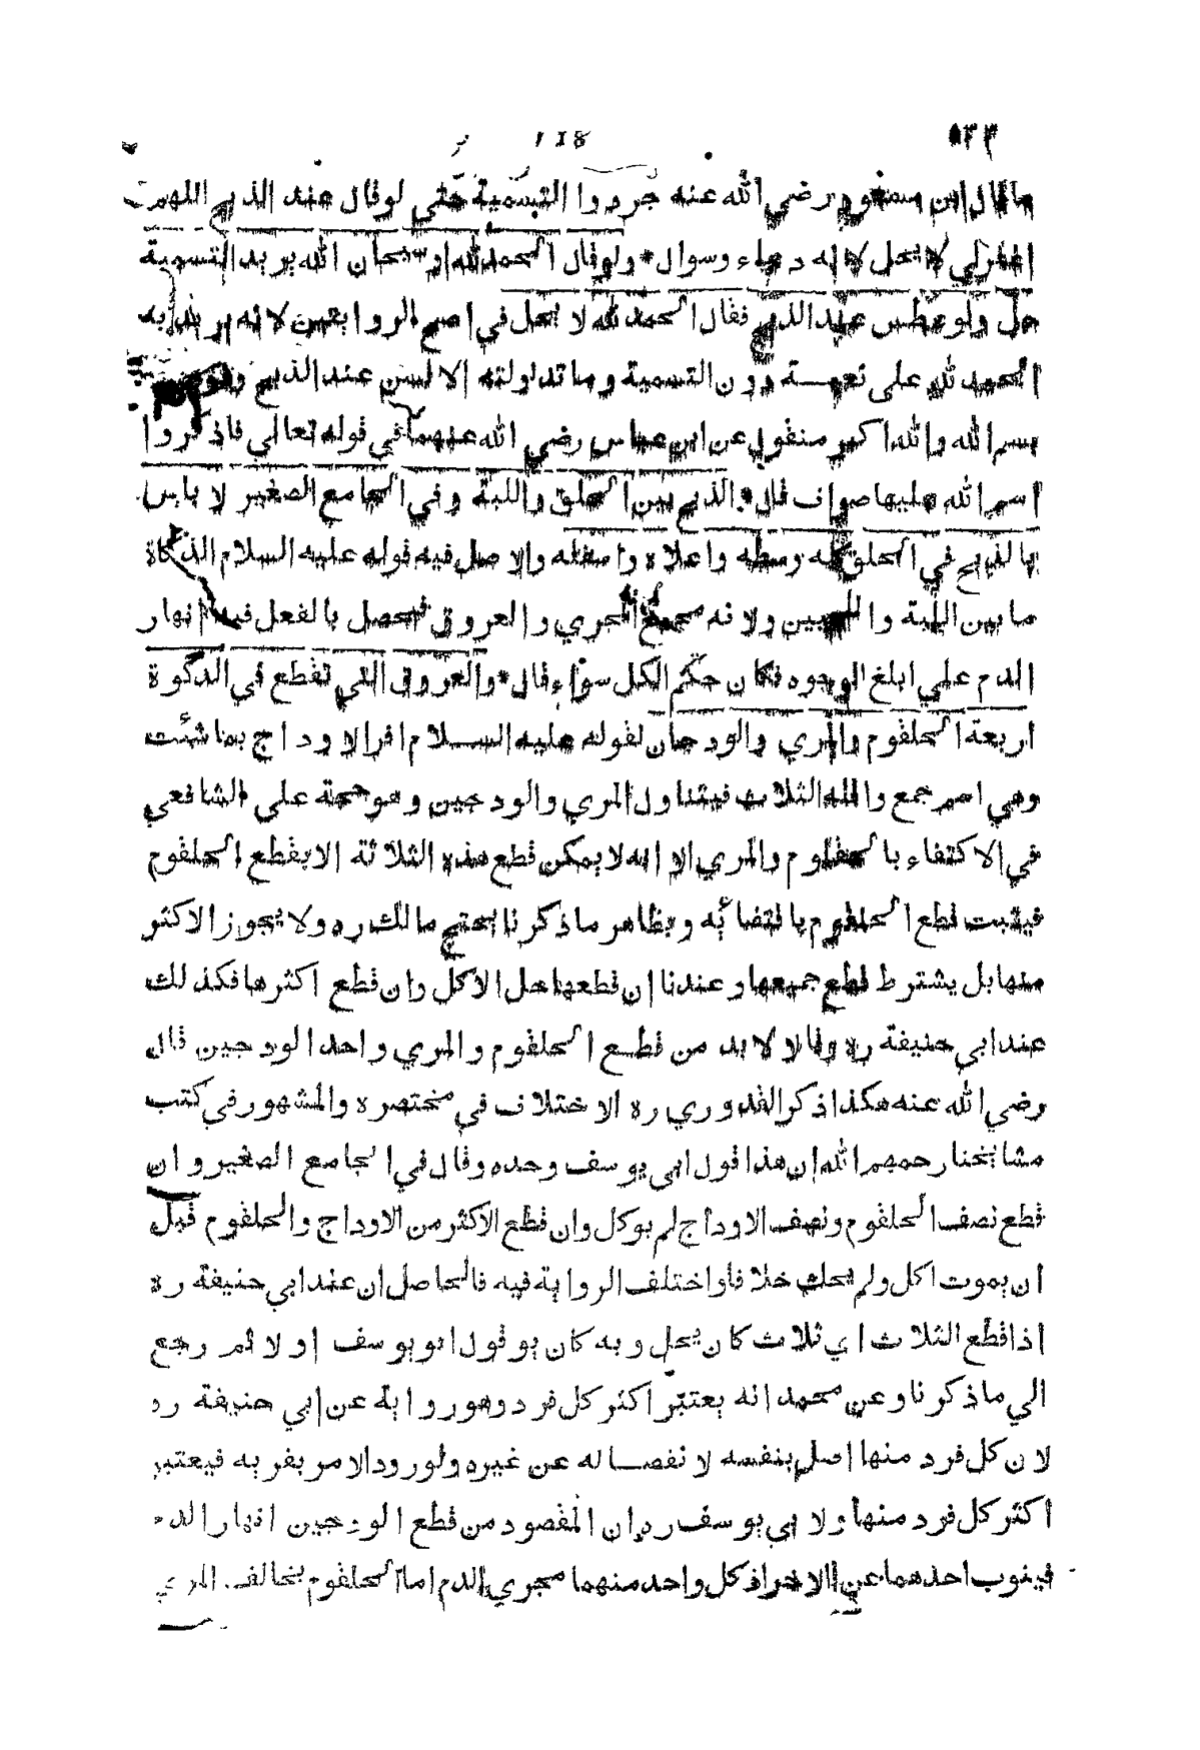 ٥٣٣ 118
ما قال ابن مسعود رضي الله عنه جردوا التسمية حتي لو قال عند الذبح اللهم
اغفرلي لا يحل لانه دعاء وسوال * ولو قال الحمد لله او سبحان الله يريد التسمية
حل ولو عطس عند الذبح فقال الحمد لله لا يحل في اصح الروايتين لانه يريد به
الحمد لله علي نعمة دون التسمية وما تداولته الالسن عند الذبح وهو
بسم الله والله اكبر منقول عن ابن عباس رضي الله عنهما في قوله تعالي فاذكروا
اسم الله عليها صواف قال * الذبح بين الحلق واللبة وفي الجامع الصغير لا باس
بالذبح في الحلق كله وسطه واعلاه واسفله والاصل فيه قوله عليه السلام الذكاة
ما بين اللبة واللحيين ولانه مجمع المجري والعروق فيحصل بالفعل فيه انهار
الدم علي ابلغ الوجوه فكان حكم الكل سواء قال * والعروق التي تقطع في الذكوة
اربعة الحلقوم والمري والودجان لقوله عليه السلام افر الاوداج بما شئت
وهي اسم جمع واقله الثلاث فيتناول المري والودجين وهو حجة علي الشافعي
في الاكتفاء بالحلقوم والمري الا انه لا يمكن قطع هذه الثلاثة الا بقطع الحلقوم
فيثبت قطع الحلقوم باقتضائه وبظاهر ما ذكرنا يحتج مالك ره ولا يجوز الاكثر
منها بل يشترط قطع جميعها وعندنا ان قطعها حل الاكل وان قطع اكثرها فكذلك
عند ابي حنيفة ره وقالا لا بد من قطع الحلقوم والمري واحد الودجين قال
رضي الله عنه هكذا ذكر القدوري ره الاختلاف في مختصره والمشهور في كتب
مشايخنا رحمهم الله ان هذا قول ابي يوسف وحده وقال في الجامع الصغير وان
قطع نصف الحلقوم ونصف الاوداج لم يوكل وان قطع الاكثر من الاوداج والحلقوم قبل
ان يموت اكل ولم يحك خلافا واختلف الرواية فيه فالحاصل ان عند ابي حنيفة ره
اذا قطع الثلاث اي ثلاث كان يحل وبه كان يوقول ابو يوسف اولا ثم رجع
الي ما ذكرنا وعن محمد انه يعتبر اكثر كل فرد وهو رواية عن ابي حنيفة ره
لان كل فرد منها اصل بنفسه لانفصاله عن غيره ولورود الامر بفريه فيعتبر
اكثر كل فرد منها ولابي يوسف ره ان المقصود من قطع الودجين انهار الدم
فينوب احدهما عن الاخر اذ كل واحد منهما مجري الدم اما الحلقوم يخالف المري